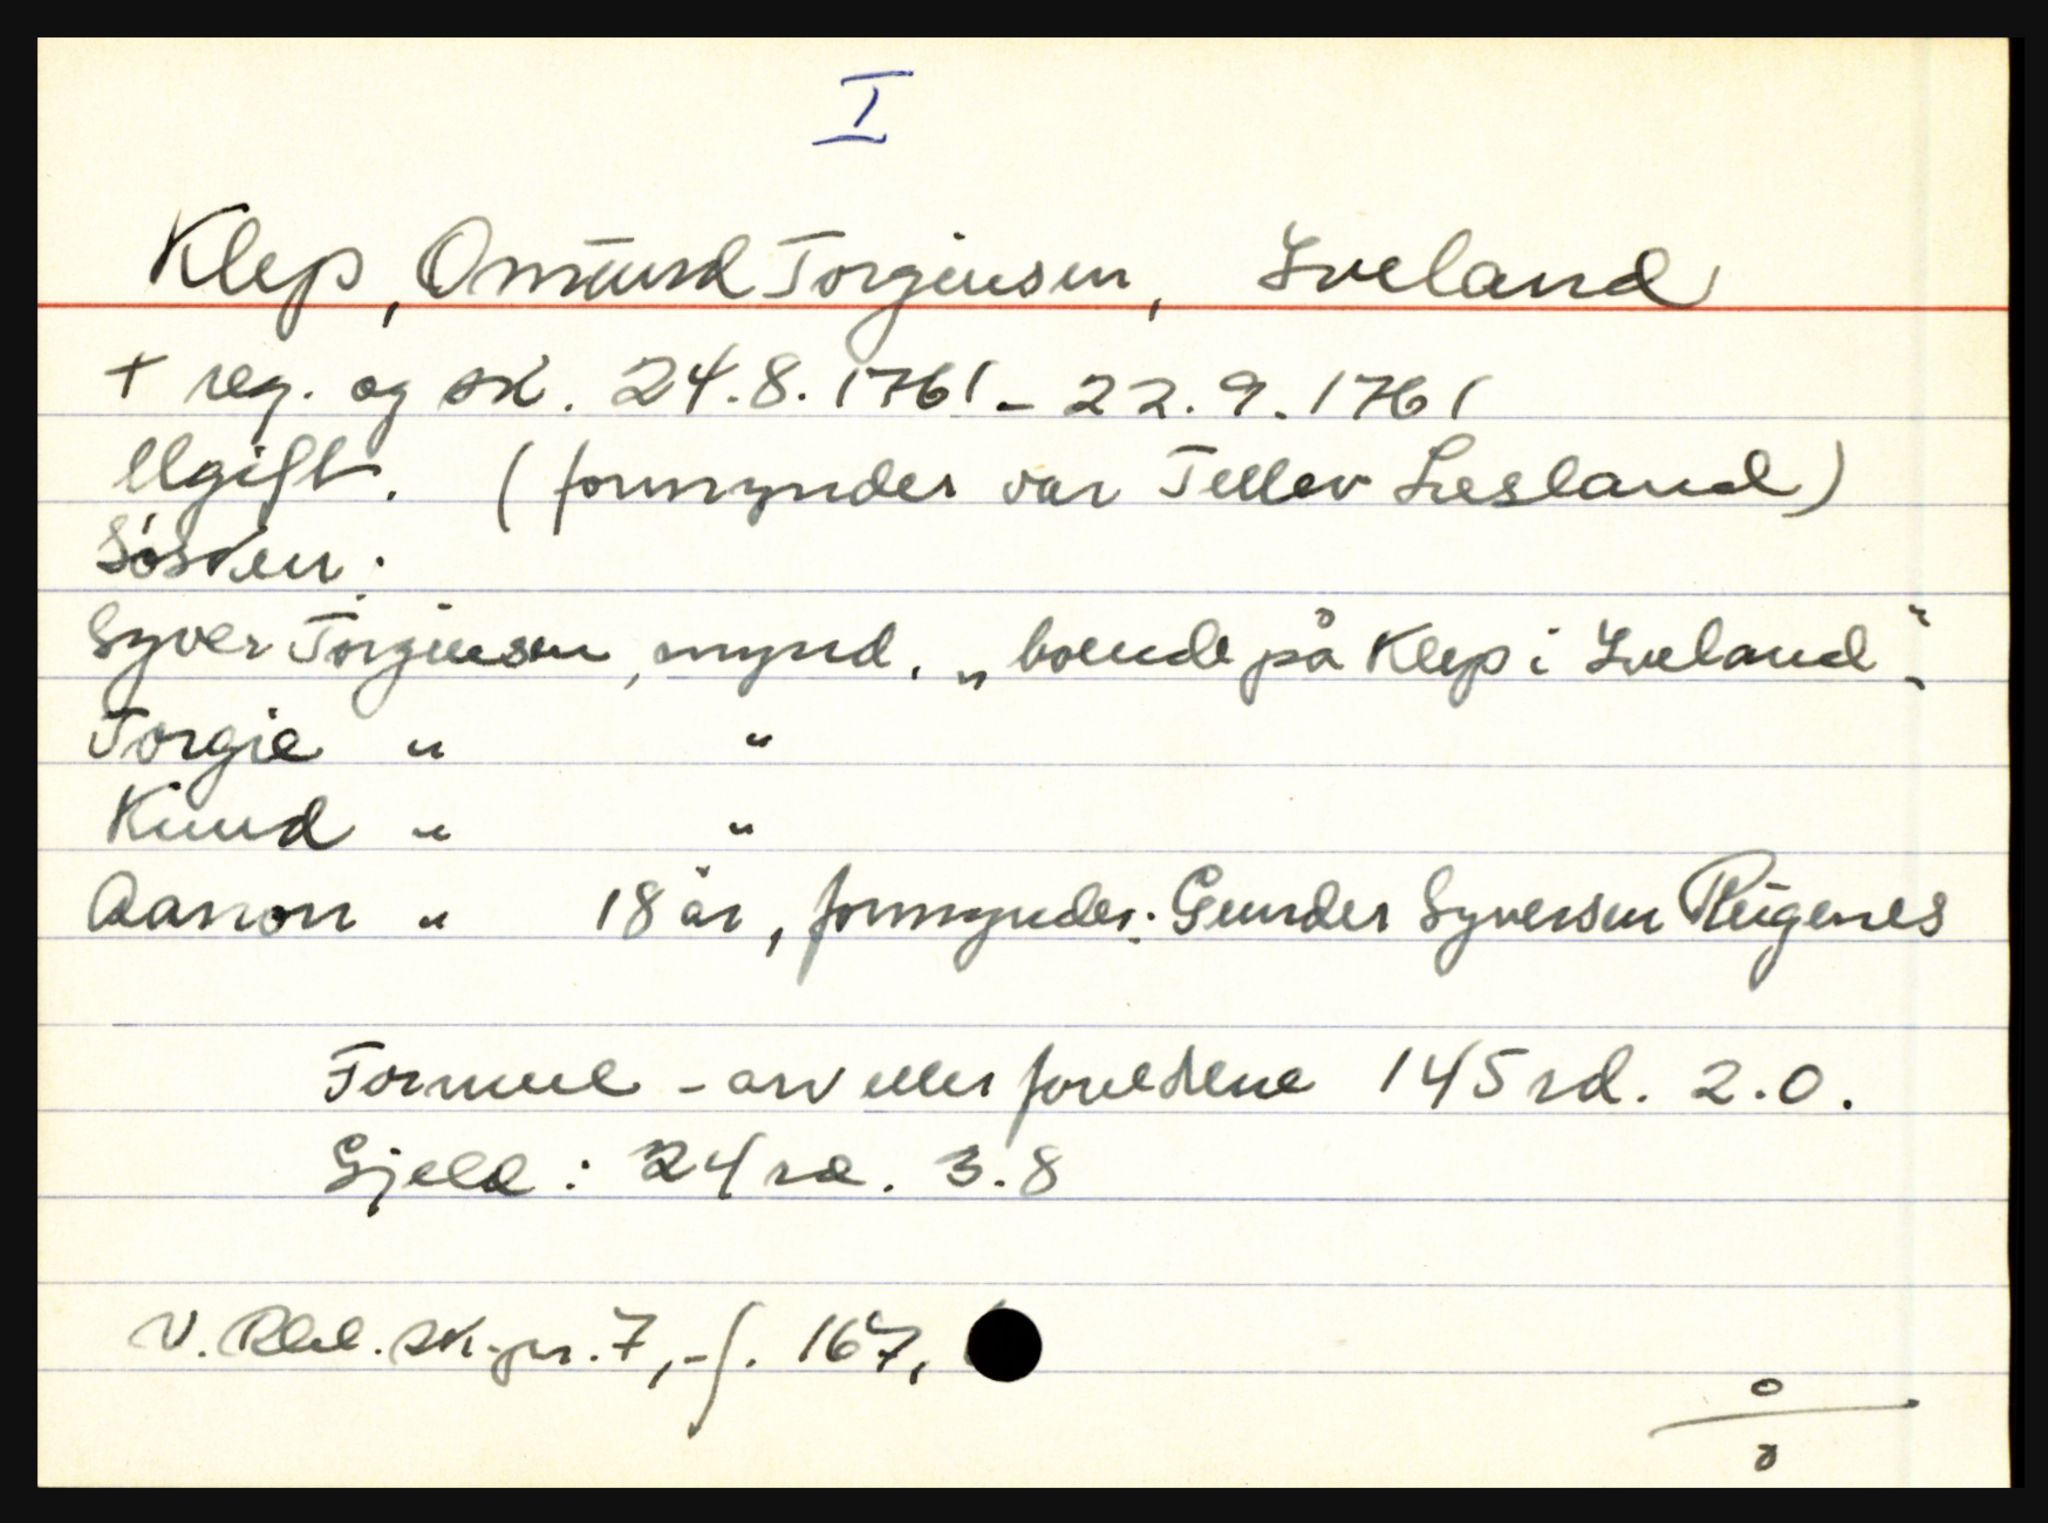 I
Klep, Omund Torgiusen, Iveland
+ reg. og sk. 24.8.1761 - 22.9.1761
Ugift. (formynder var Tellev Liesland)
Søsken:
Syver Torgiusen, mynd. „boende på Klep i Iveland".
Torgie " "
Knud " "
Aanon " 18 år, formynder: Gunder Syversen
Formue - arv etter foreldrene 145 rd. 2.0.
Gjeld: 24 rd. 3.8
V. Rbd. sk.pr. 7, - f. 167,